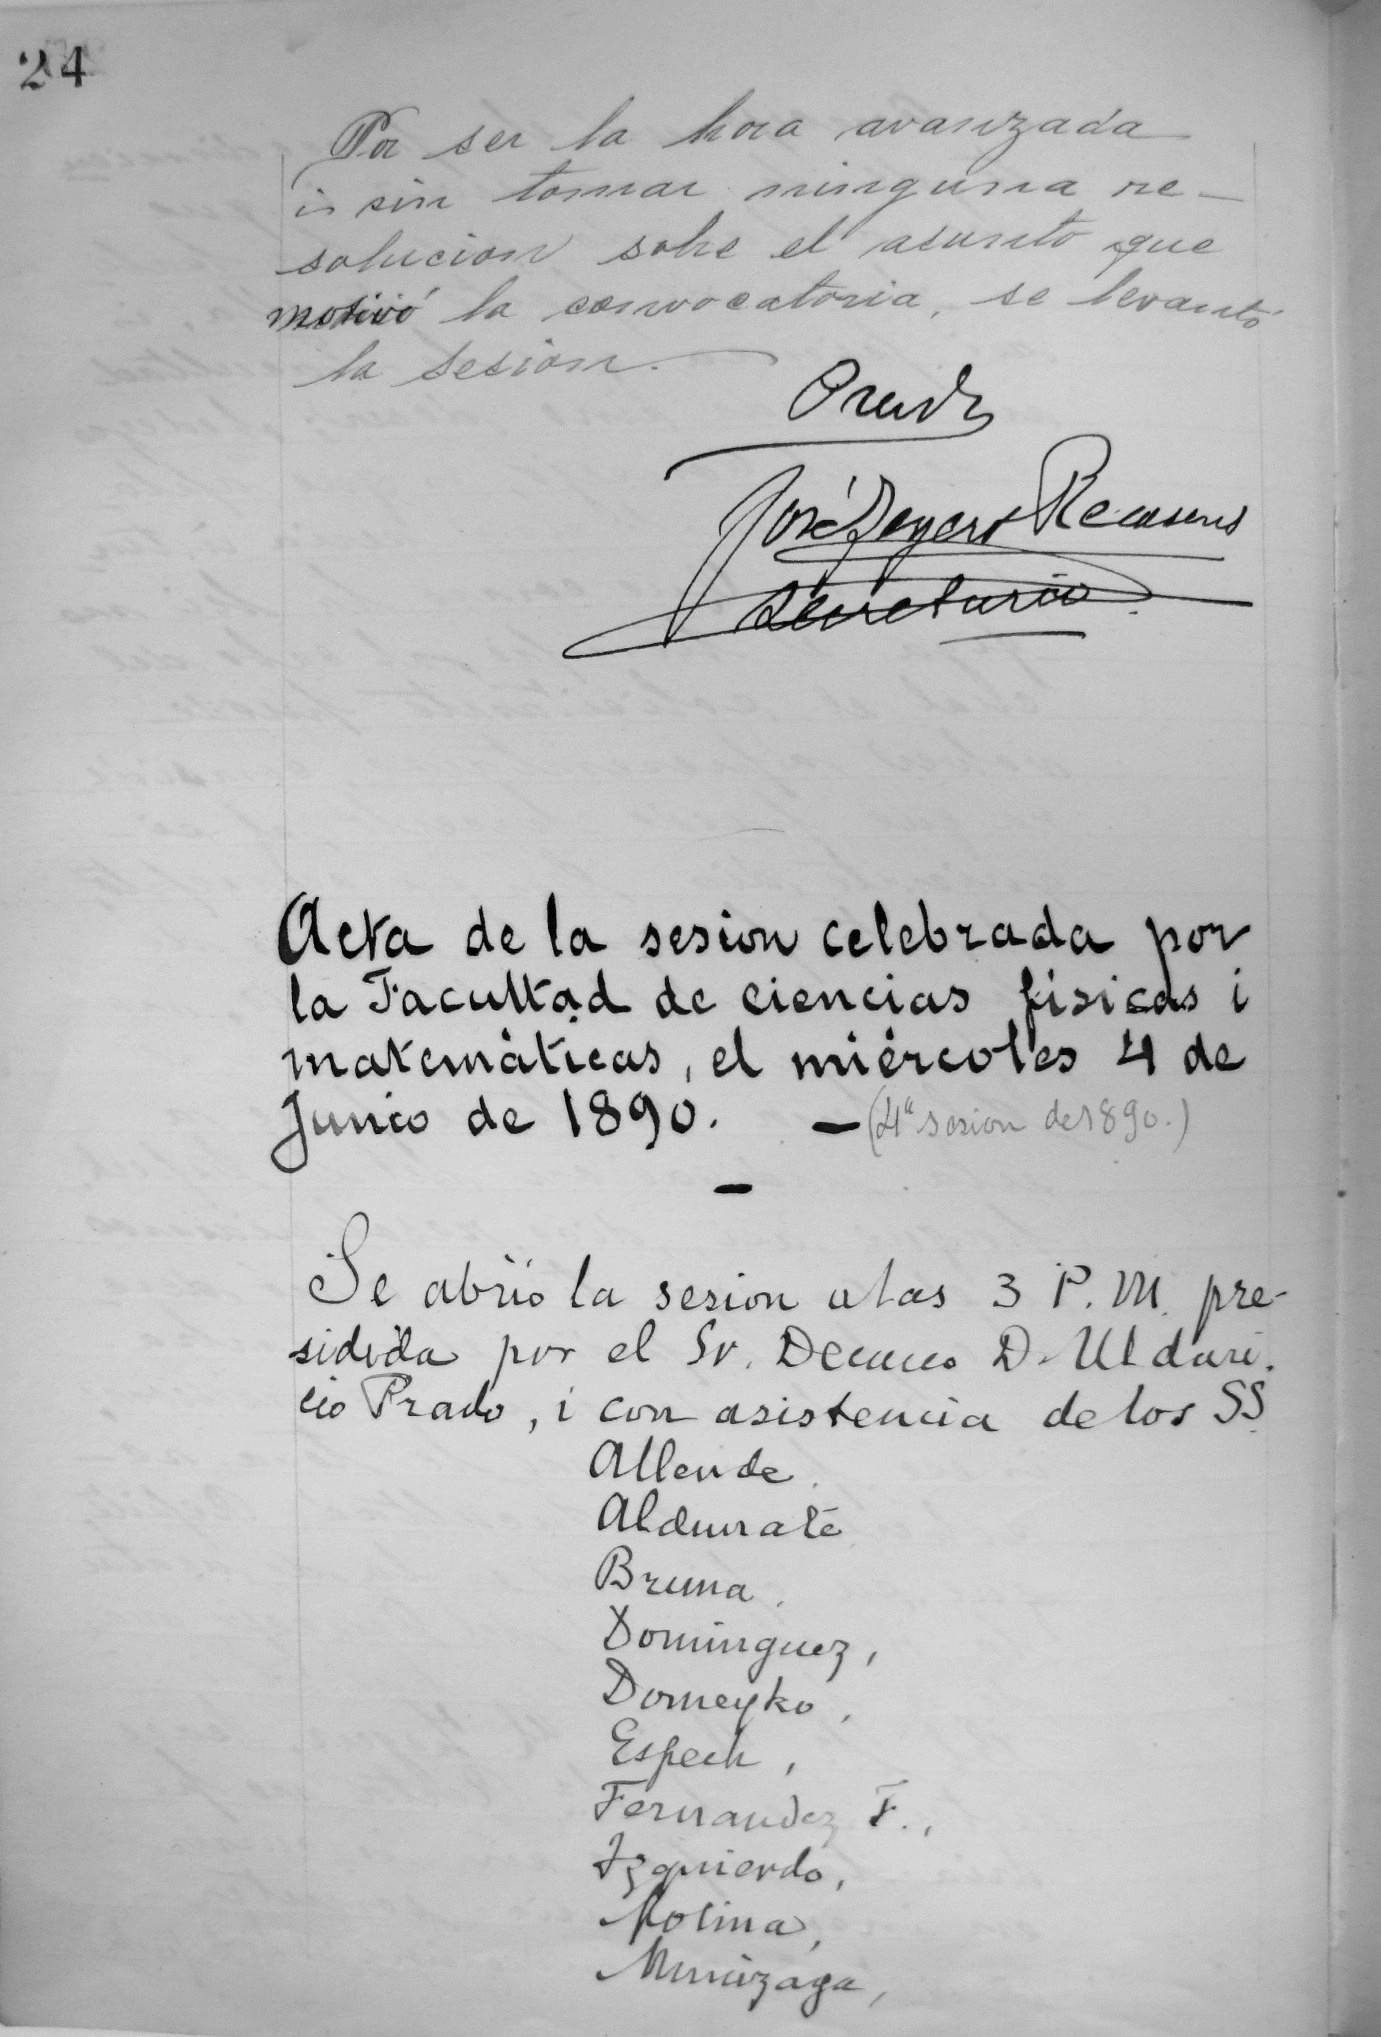 24
Por ser la hora avanzada
i sin tomar ninguna re-
solucion sobre el asunto que
motivó la convocatoria, se levantó
la sesion.
Prado
José Zegers Recasens
Secretario
Acta de la sesion celebrada por
la Facultad de ciencias físicas i
matemáticas, el miércoles 4 de
Junio de 1890. — (4ª sesion de 1890.)
—
Se abrió la sesion a las 3 P.M. pre-
sidida por el Sr. Decano D. Uldari-
cio Prado, i con asistencia de los SS.
Allende,
Aldunate
Bruna,
Dominguez,
Domeyko,
Espech,
Fernandez F.,
Izquierdo,
Molina,
Munizaga,